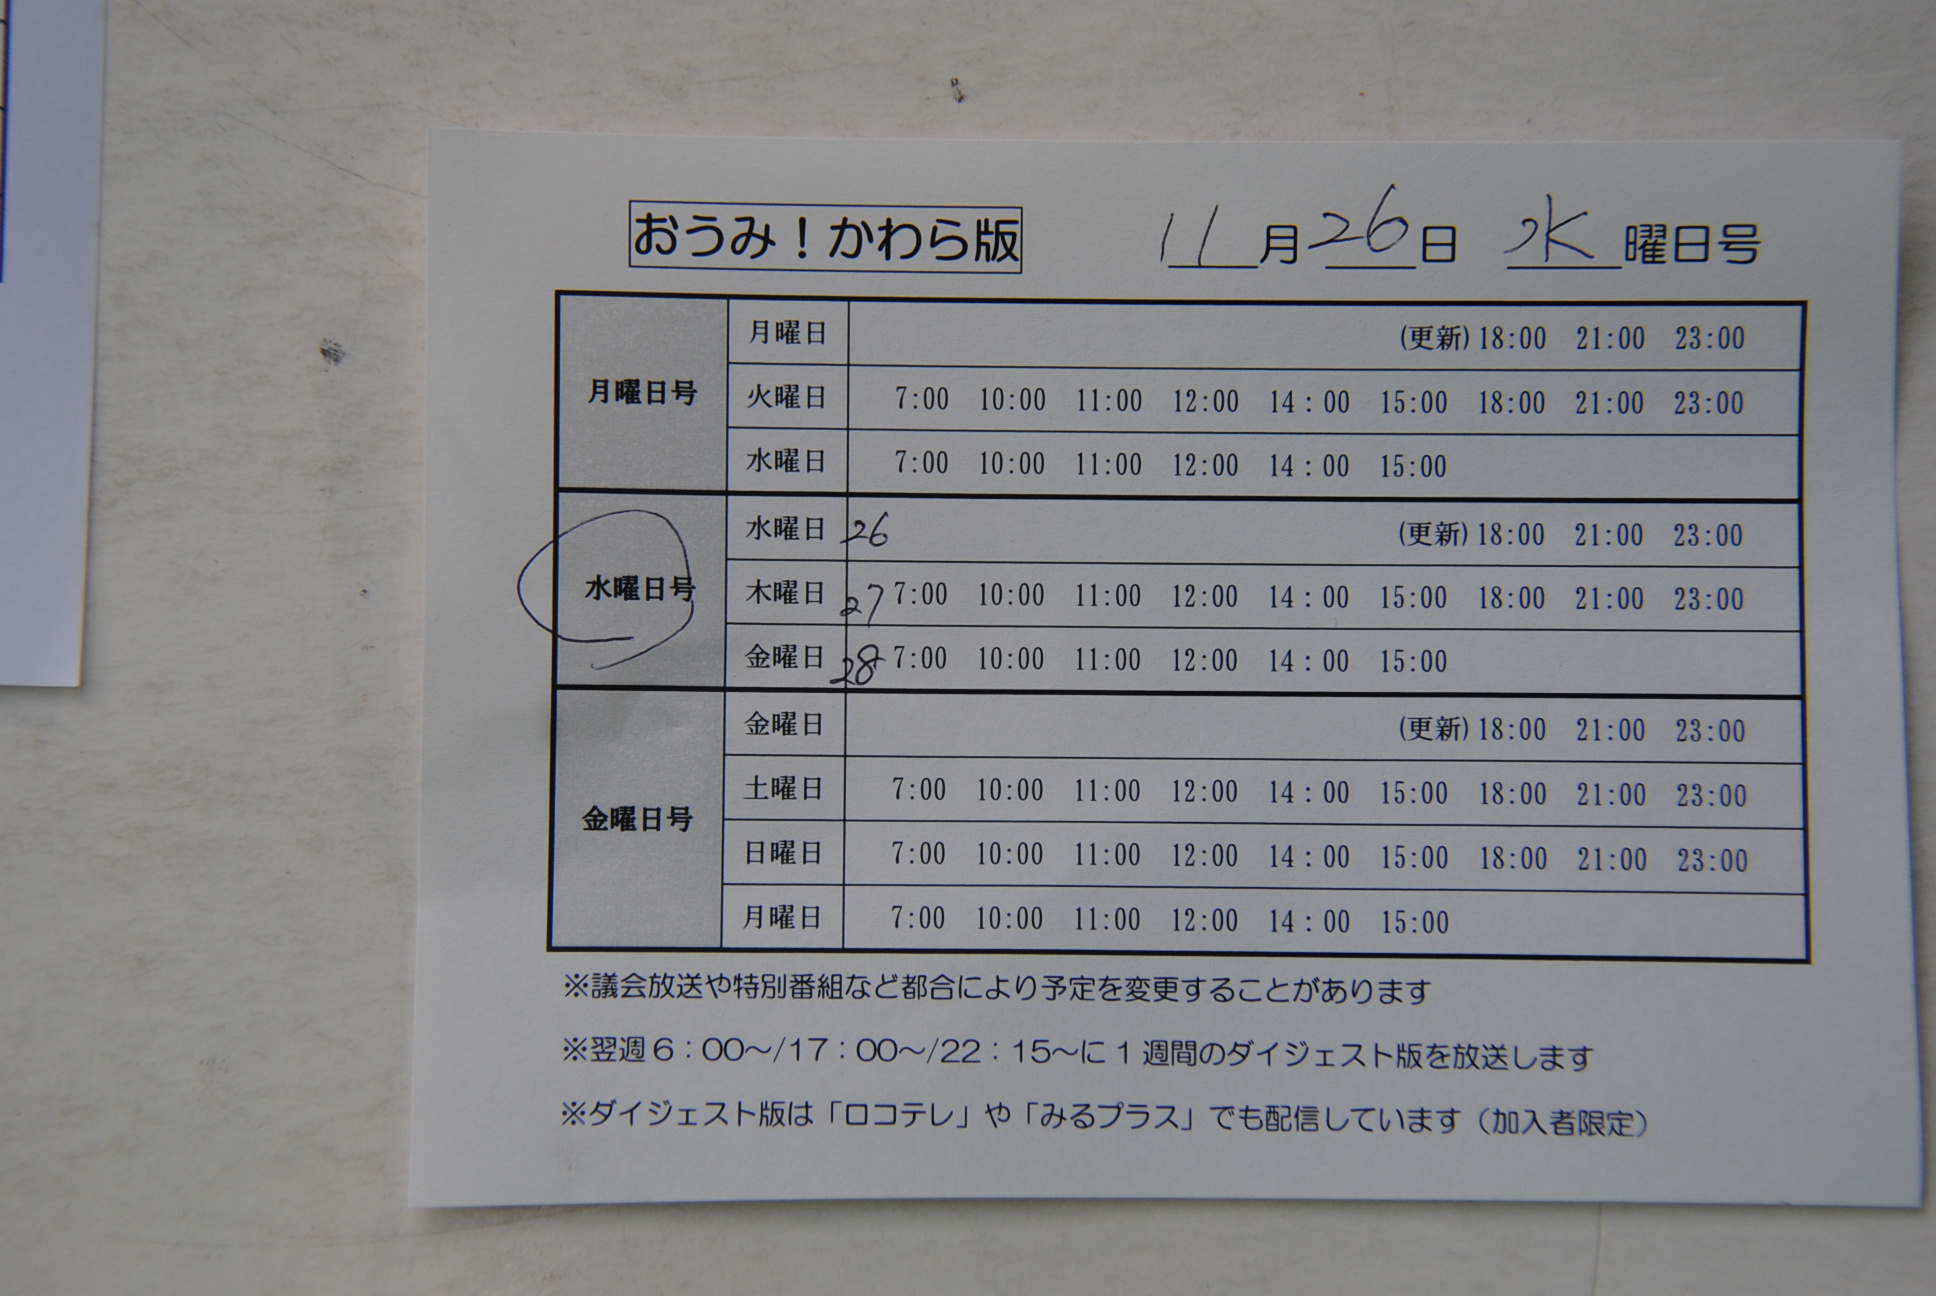 おうみ！かわら版 11月26日 水曜日号
月曜日号 月曜日 (更新)18:00 21:00 23:00
火曜日 7:00 10:00 11:00 12:00 14：00 15:00 18:00 21:00 23:00
水曜日 7:00 10:00 11:00 12:00 14：00 15:00
水曜日号 水曜日 26 (更新)18:00 21:00 23:00
木曜日 27 7:00 10:00 11:00 12:00 14：00 15:00 18:00 21:00 23:00
金曜日 28 7:00 10:00 11:00 12:00 14：00 15:00
金曜日号 金曜日 (更新)18:00 21:00 23:00
土曜日 7:00 10:00 11:00 12:00 14：00 15:00 18:00 21:00 23:00
日曜日 7:00 10:00 11:00 12:00 14：00 15:00 18:00 21:00 23:00
月曜日 7:00 10:00 11:00 12:00 14：00 15:00
※議会放送や特別番組など都合により予定を変更することがあります
※翌週6：00～/17：00～/22：15～に1週間のダイジェスト版を放送します
※ダイジェスト版は「ロコテレ」や「みるプラス」でも配信しています（加入者限定）